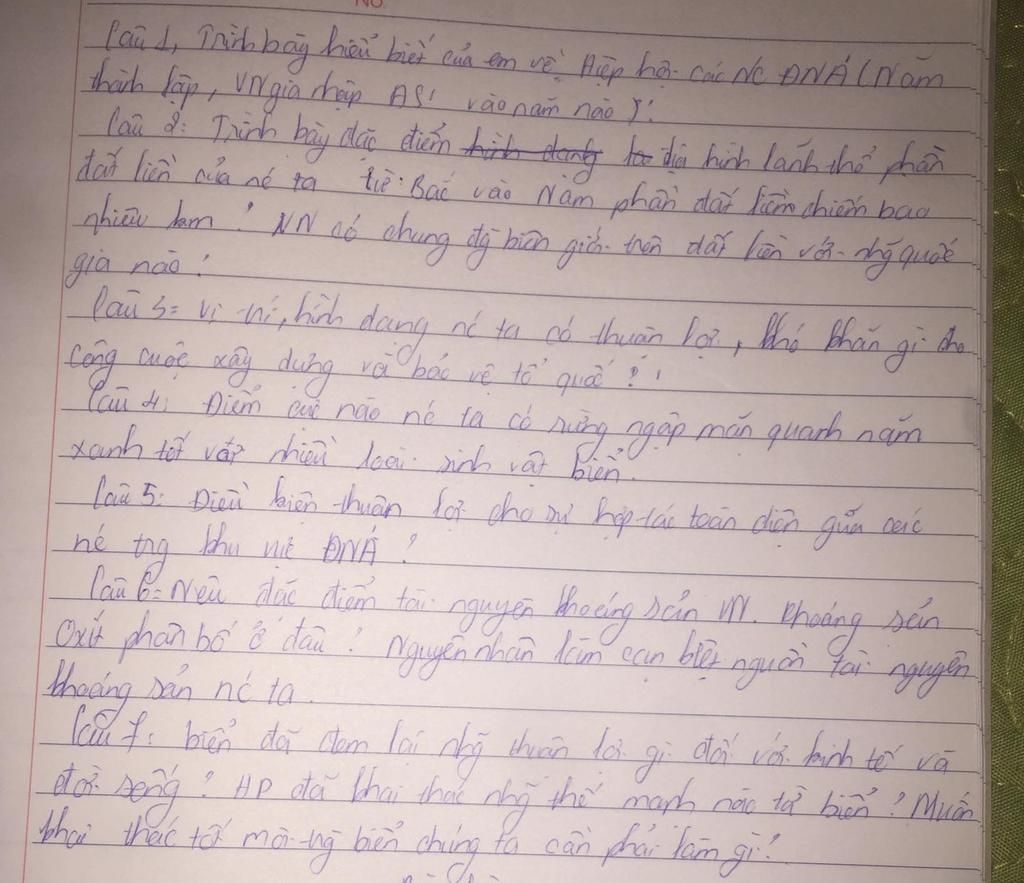 No.
Câu 1, Trình bày hiểu biết của em về Hiệp hội các NC ĐNÁ (Năm
thành lập, VN gia nhập AS vào năm nào)?
Câu 2: Trình bày đặc điểm hình dạng địa hình lãnh thổ phần
đất liền của nc ta từ Bắc vào Nam phần đất liền chiếm bao
nhiêu km? VN có chung đg biên giới trên đất liền với nhg quốc
gia nào?
Câu 3: Vị trí, hình dạng nc ta có thuận lợi, khó khăn gì cho
công cuộc xây dựng và bảo vệ tổ quốc?
Câu 4: Điểm cực nào nc ta có rừng ngập mặn quanh năm
xanh tốt với nhiều loài sinh vật biển.
Câu 5: Điều kiện thuận lợi cho sự hợp tác toàn diện giữa các
nc trg khu vực ĐNÁ?
Câu 6: Nêu đặc điểm tài nguyên khoáng sản VN. Khoáng sản
Oxít phân bố ở đâu? Nguyên nhân làm cạn kiệt nguồn tài nguyên
khoáng sản nc ta.
Câu 7: biển đã đem lại nhg thuận lợi gì đối với kinh tế và
đời sống? HP đã khai thác nhg thế mạnh nào từ biển? Muốn
khai thác tốt môi trg biển chúng ta cần phải làm gì?